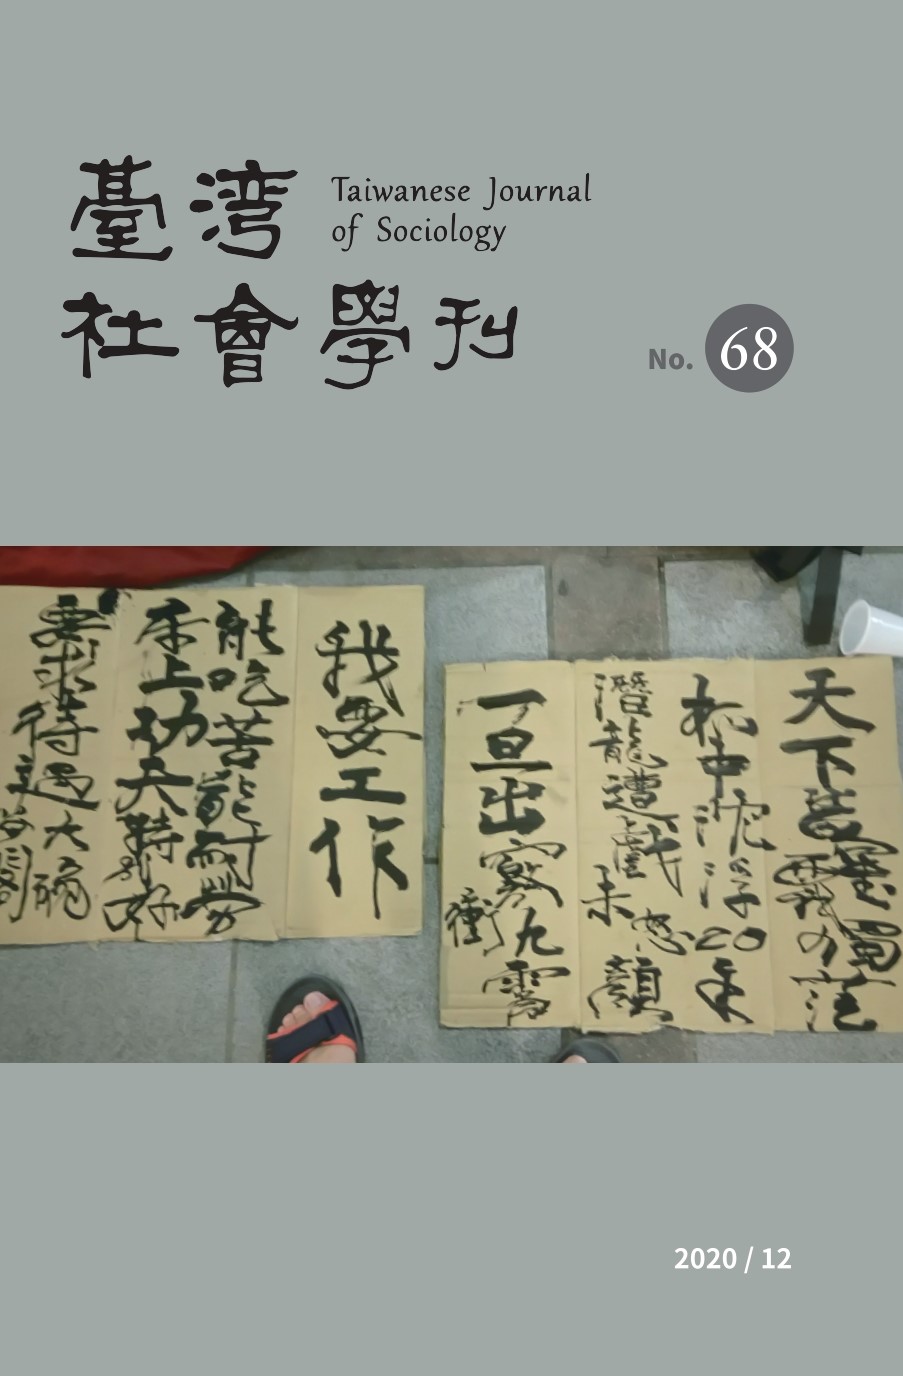 臺灣
Taiwanese Journal
of Sociology
社會學刊
No. 68
我要工作
能吃苦能耐勞
手上功夫特別好
要求待遇大碗
天下皆
杯中沈浮20年
潛龍遭
未怒顏
一旦出竅九霄
衝
2020 / 12